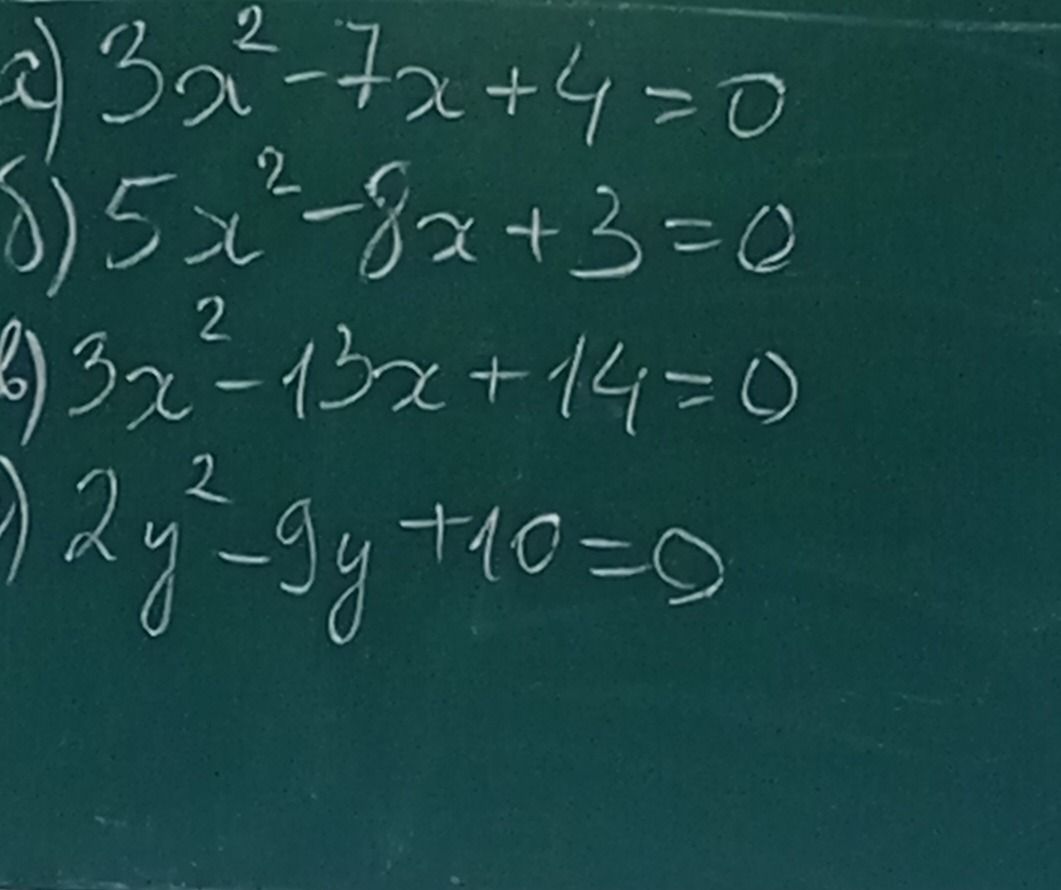 а) 3x² - 7x + 4 = 0
б) 5x² - 8x + 3 = 0
в) 3x² - 13x + 14 = 0
) 2y² - 9y + 10 = 0